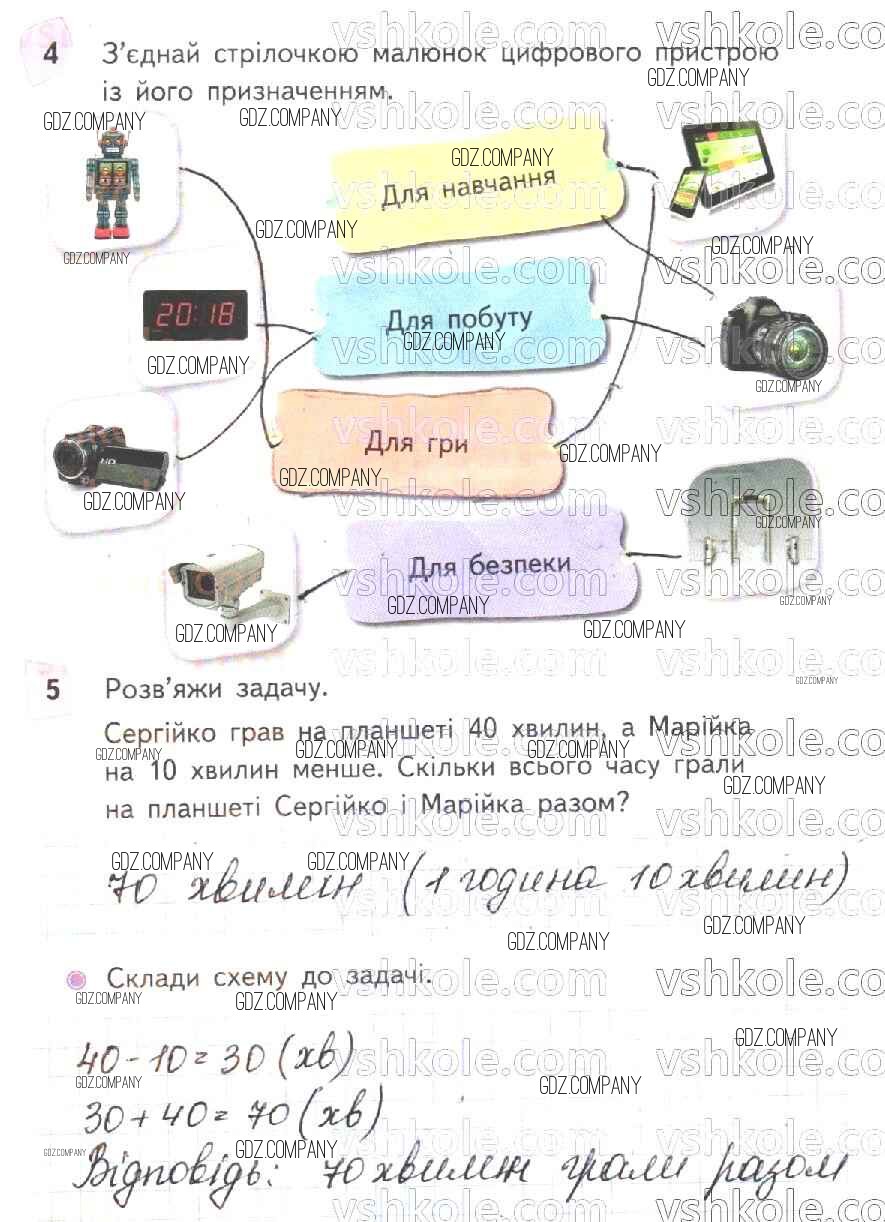 4 З’єднай стрілочкою малюнок цифрового пристрою
із його призначенням.
Для навчання
20:18
Для побуту
Для гри
HD
Для безпеки
5 Розв’яжи задачу.
Сергійко грав на планшеті 40 хвилин, а Марійка
на 10 хвилин менше. Скільки всього часу грали
на планшеті Сергійко і Марійка разом?
70 хвилин (1 година 10 хвилин)
Склади схему до задачі.
40 - 10 = 30 (хв)
30 + 40 = 70 (хв)
Відповідь: 70 хвилин грали разом
vshkole.com
GDZ.COMPANY